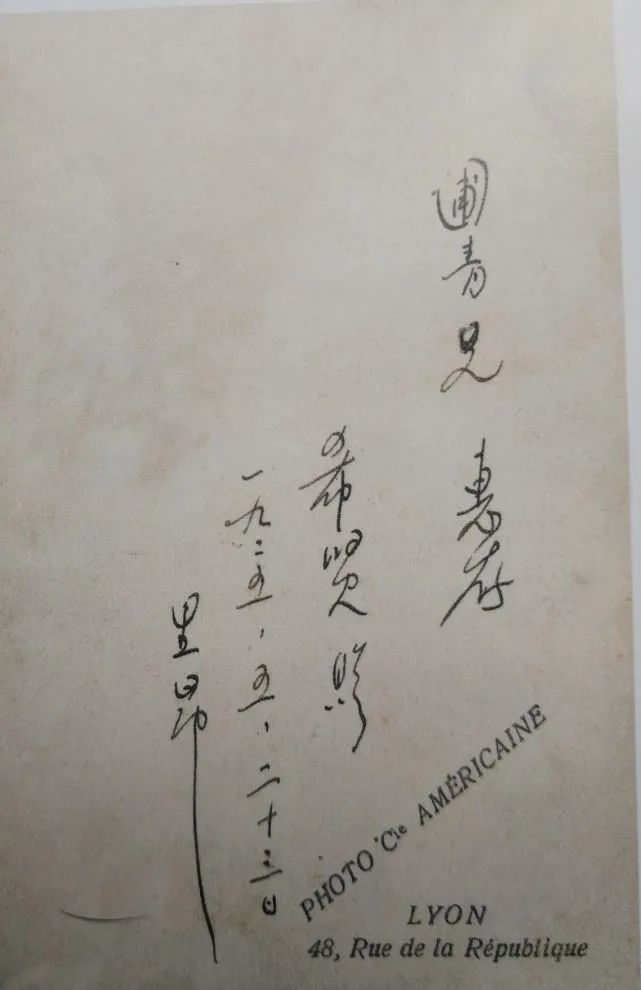 圃青兄 惠存
希賢 贈
一九二五·五·二十三日
里昂
PHOTO Cie AMÉRICAINE
LYON
48, Rue de la République